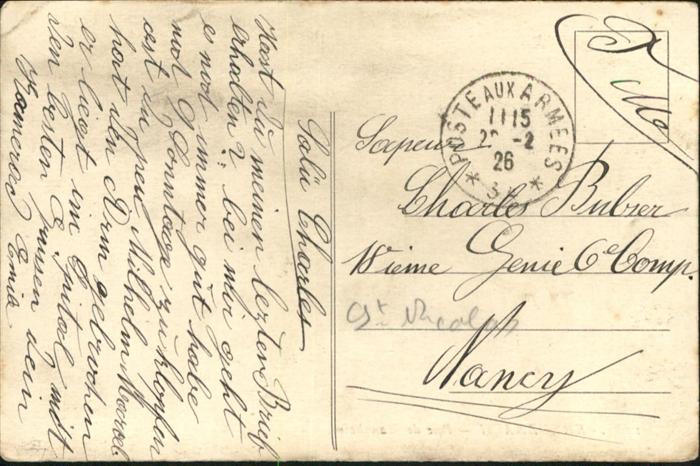 Salü Charles
Hast du meinen lezten Brief
erhalten? bei mir geht
es noch immer gut habe
noch 9 Sonntage zu klopfen
c'est un peu Wilhelm Marcel
hat den Arm gebrochen
er liegt im Spital, mit
den besten grüssen dein
Kamerad Emil
F. M.
POSTE AUX ARMEES
1115
22 -2
26
* 3 *
Sapeur
Charles Bubser
18ieme Genie 6e Comp.
St. Nicolas
Nancy